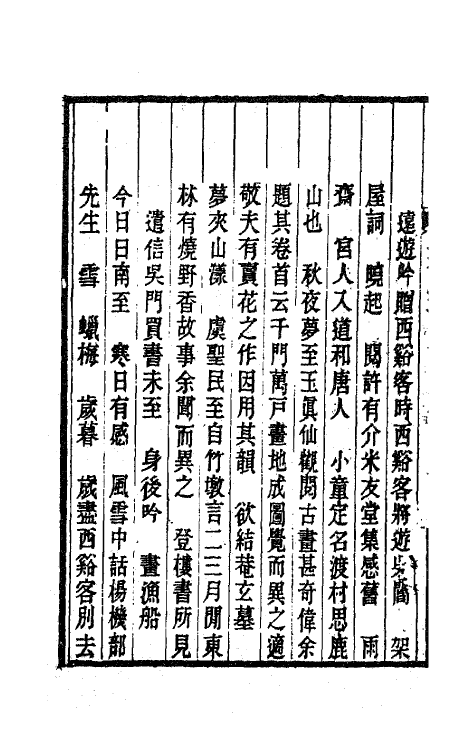 遠遊吟贈西谿客時西谿客將遊 架
屋詞 曉起 閱許有介米友堂集感舊 雨
齋 宮人入道和唐人 小童定名渡村思鹿
山也 秋夜夢至玉眞仙觀閱古畫甚奇偉余
題其卷首云千門萬戸畫地成圖覺而異之適
敬夫有賣花之作因用其韻 欲結菴玄墓
夢夾山漾 虞聖民至自竹墩言二三月閒東
林有燒野香故事余聞而異之 登樓書所見
遣信吳門買書未至 身後吟 畫漁船
今日日南至 寒日有感 風雪中話楊機部
先生 雪 蠟梅 歲暮 歲盡西谿客別去